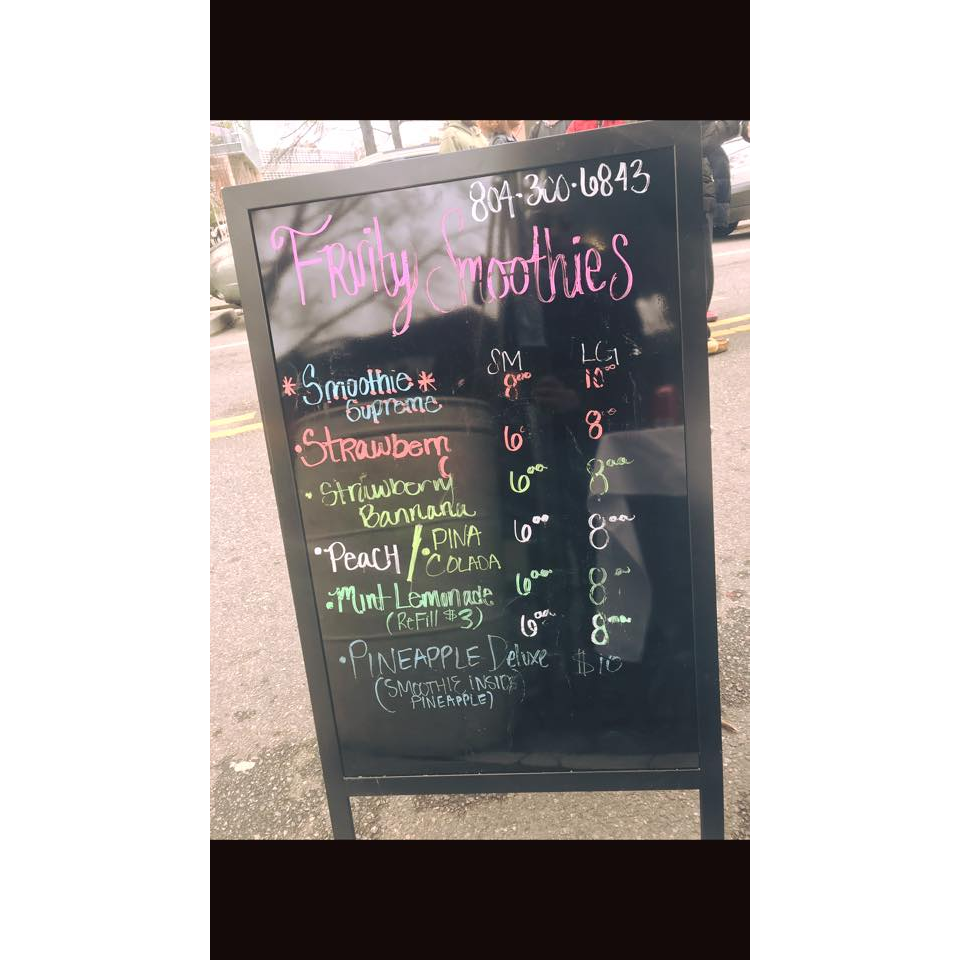 804-300-6843
Fruity Smoothies
SM LG
*Smoothie* 8.00 10.00
Supreme
•Strawberry 6 8
•Strawberry 6.00 8.00
Bannana
•Peach / •PINA 6.00 8.00
COLADA
•Mint Lemonade 6.00 8
(ReFill $3) 6.00 8.00
•PINEAPPLE Deluxe $10
(SMOOTHIE INSIDE
PINEAPPLE)